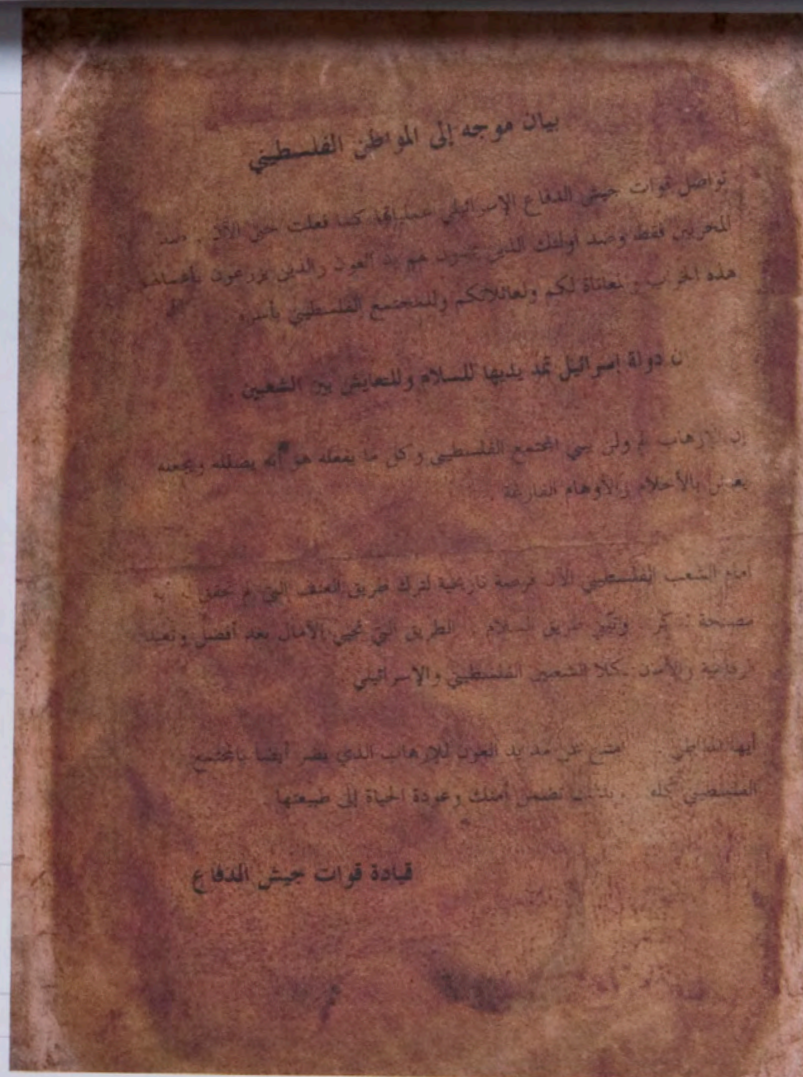 بيان موجه إلى المواطن الفلسطيني
تواصل قوات جيش الدفاع الإسرائيلي عملياتها كما فعلت حتى الآن ، ضد
المخربين فقط وضد أولئك الذين يمدون لهم يد العون والذين يزرعون بأعمالهم
هذه الخراب والمعاناة لكم ولعائلاتكم وللمجتمع الفلسطيني بأسره
ن دولة إسرائيل تمد يديها للسلام وللتعايش بين الشعبين .
إن الإرهاب لم ولن يبني المجتمع الفلسطيني وكل ما يفعله هو أنه يضلله ويجعله
يعيش بالأحلام والأوهام الفارغة .
أمام الشعب الفلسطيني الآن فرصة تاريخية لترك طريق العنف التي لم تحقق أية
مصلحة وتبني طريق السلام . الطريق التي تحيي الآمال بغد أفضل
والأمن لكلا الشعبين الفلسطيني والإسرائيلي
أيها امتنع عن مد يد العون للإرهاب الذي يضر أيضا بالمجتمع
الفلسطيني كله وبذلك تضمن أمنك وعودة الحياة إلى طبيعتها .
قيادة قوات جيش الدفاع